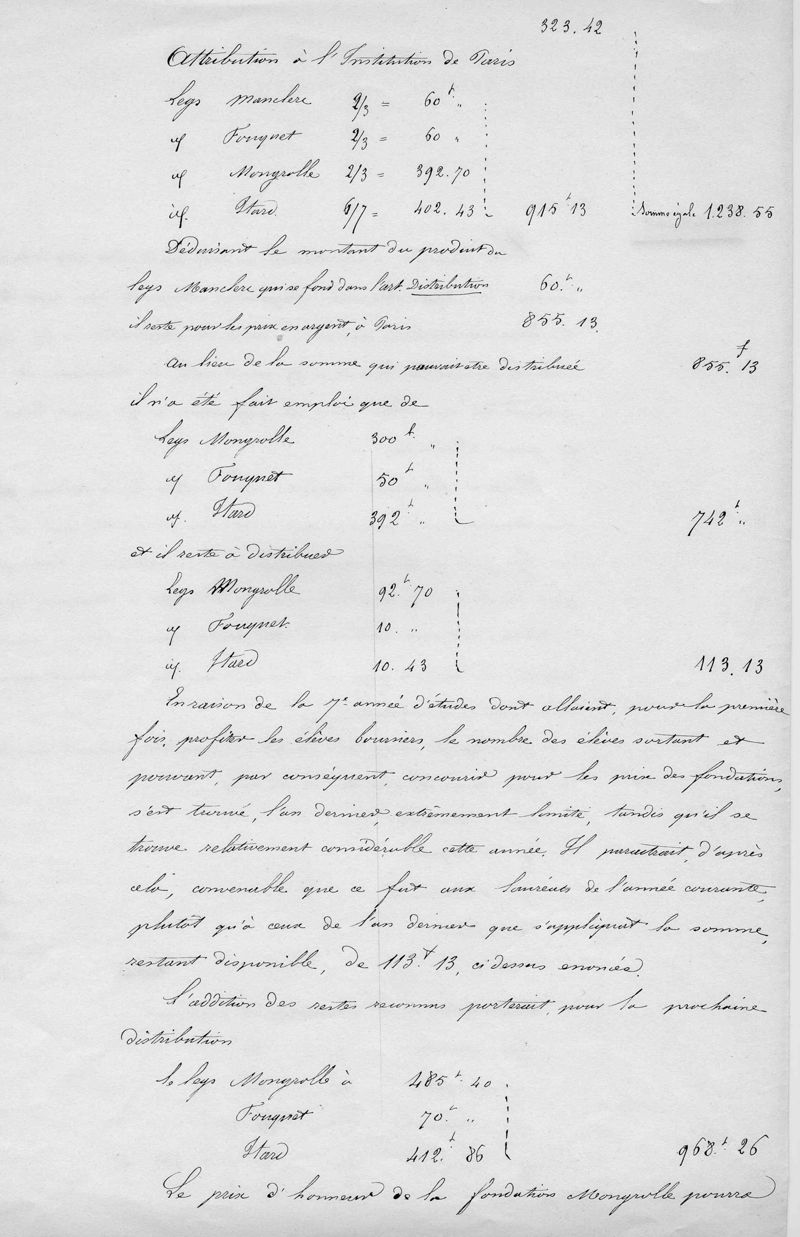 323.42
Attribution à l'Institution de Paris
Legs Manclerc 2/3 = 60f "
id Fouquet 2/3 = 60 "
id Mongrolle 2/3 = 392.70
id. Itard. 6/7 = 402.43 915f 13 Somme égale 1.238.55
Déduisant le montant du produit du
legs Manclerc qui se fond dans l'art. Distribution 60.f "
il reste pour les prix en argent, à Paris 855.13.
Au lieu de la somme qui pouvait être distribuée 855.f 13
il n'a été fait emploi que de
Legs Mongrolle 300f. "
id Fouquet 50f "
id. Itard 392f " 742f "
et il reste à distribuer
Legs Mongrolle 92.f 70
id Fouquet. 10. "
id. Itard 10.43 113.13
En raison de la 7e année d'études dont allaient, pour la première
fois, profiter les élèves boursiers, le nombre des élèves sortant et
pouvant, par conséquent, concourir pour les prix des fondations,
s'est trouvé, l'an dernier, extrêmement limité, tandis qu'il se
trouve relativement considérable cette année. Il paraitrait, d'après
cela, convenable que ce fut aux lauréats de l'année courante,
plutôt qu'à ceux de l'an dernier que s'appliquat la somme,
restant disponible, de 113.f 13, ci dessus enoncée.
L'addition des restes reconnus porterait, pour la prochaine
distribution
le legs Mongrolle à 485f. 40.
Fouquet 70.f "
Itard 412.f 86 968.f 26
Le prix d'honneur de la fondation Mongrolle pourra